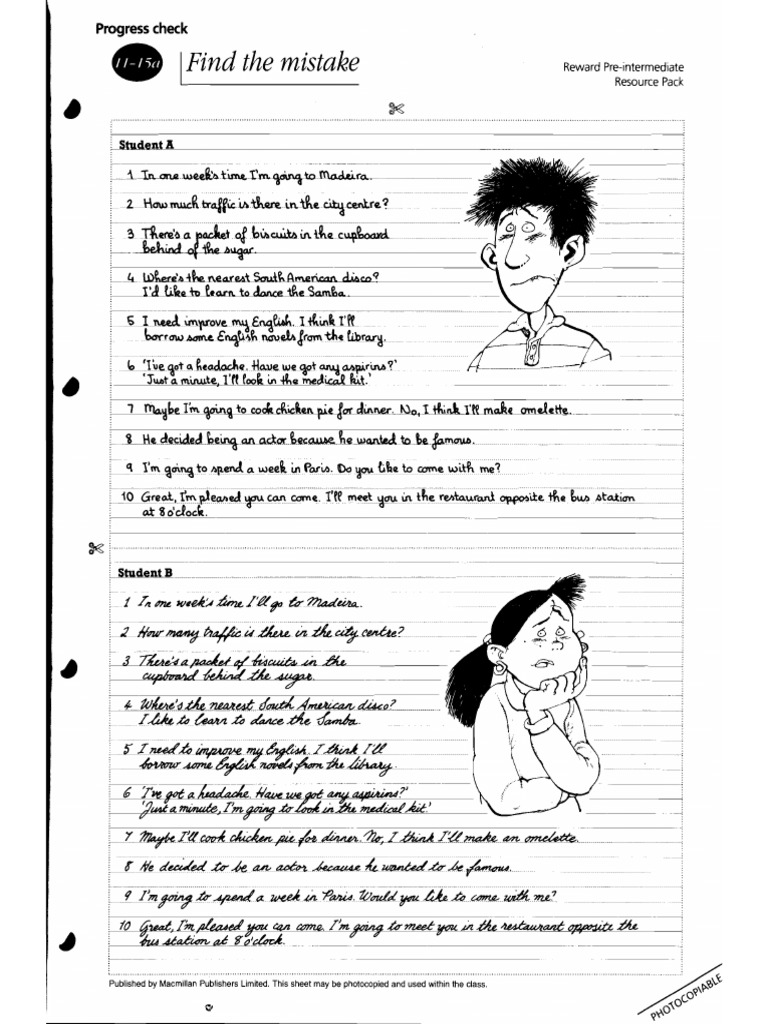 Progress check
11-15a
Find the mistake
Reward Pre-intermediate
Resource Pack
Student A
1 In one week's time I'm going to Madeira.
2 How much traffic is there in the city centre?
3 There's a packet of biscuits in the cupboard
behind of the sugar.
4 Where's the nearest South American disco?
I'd like to learn to dance the Samba.
5 I need improve my English. I think I'll
borrow some English novels from the library.
6 'I've got a headache. Have we got any aspirins?'
'Just a minute, I'll look in the medical kit.'
7 Maybe I'm going to cook chicken pie for dinner. No, I think I'll make omelette.
8 He decided being an actor because he wanted to be famous.
9 I'm going to spend a week in Paris. Do you like to come with me?
10 Great, I'm pleased you can come. I'll meet you in the restaurant opposite the bus station
at 8 o'clock.
Student B
1 In one week's time I'll go to Madeira.
2 How many traffic is there in the city centre?
3 There's a packet of biscuits in the
cupboard behind the sugar.
4 Where's the nearest South American disco?
I like to learn to dance the Samba.
5 I need to improve my English. I think I'll
borrow some English novels from the library.
6 'I've got a headache. Have we got any aspirins?'
'Just a minute, I'm going to look in the medical kit.'
7 Maybe I'll cook chicken pie for dinner. No, I think I'll make an omelette.
8 He decided to be an actor because he wanted to be famous.
9 I'm going to spend a week in Paris. Would you like to come with me?
10 Great, I'm pleased you can come. I'm going to meet you in the restaurant opposite the
bus station at 8 o'clock.
Published by Macmillan Publishers Limited. This sheet may be photocopied and used within the class.
PHOTOCOPIABLE